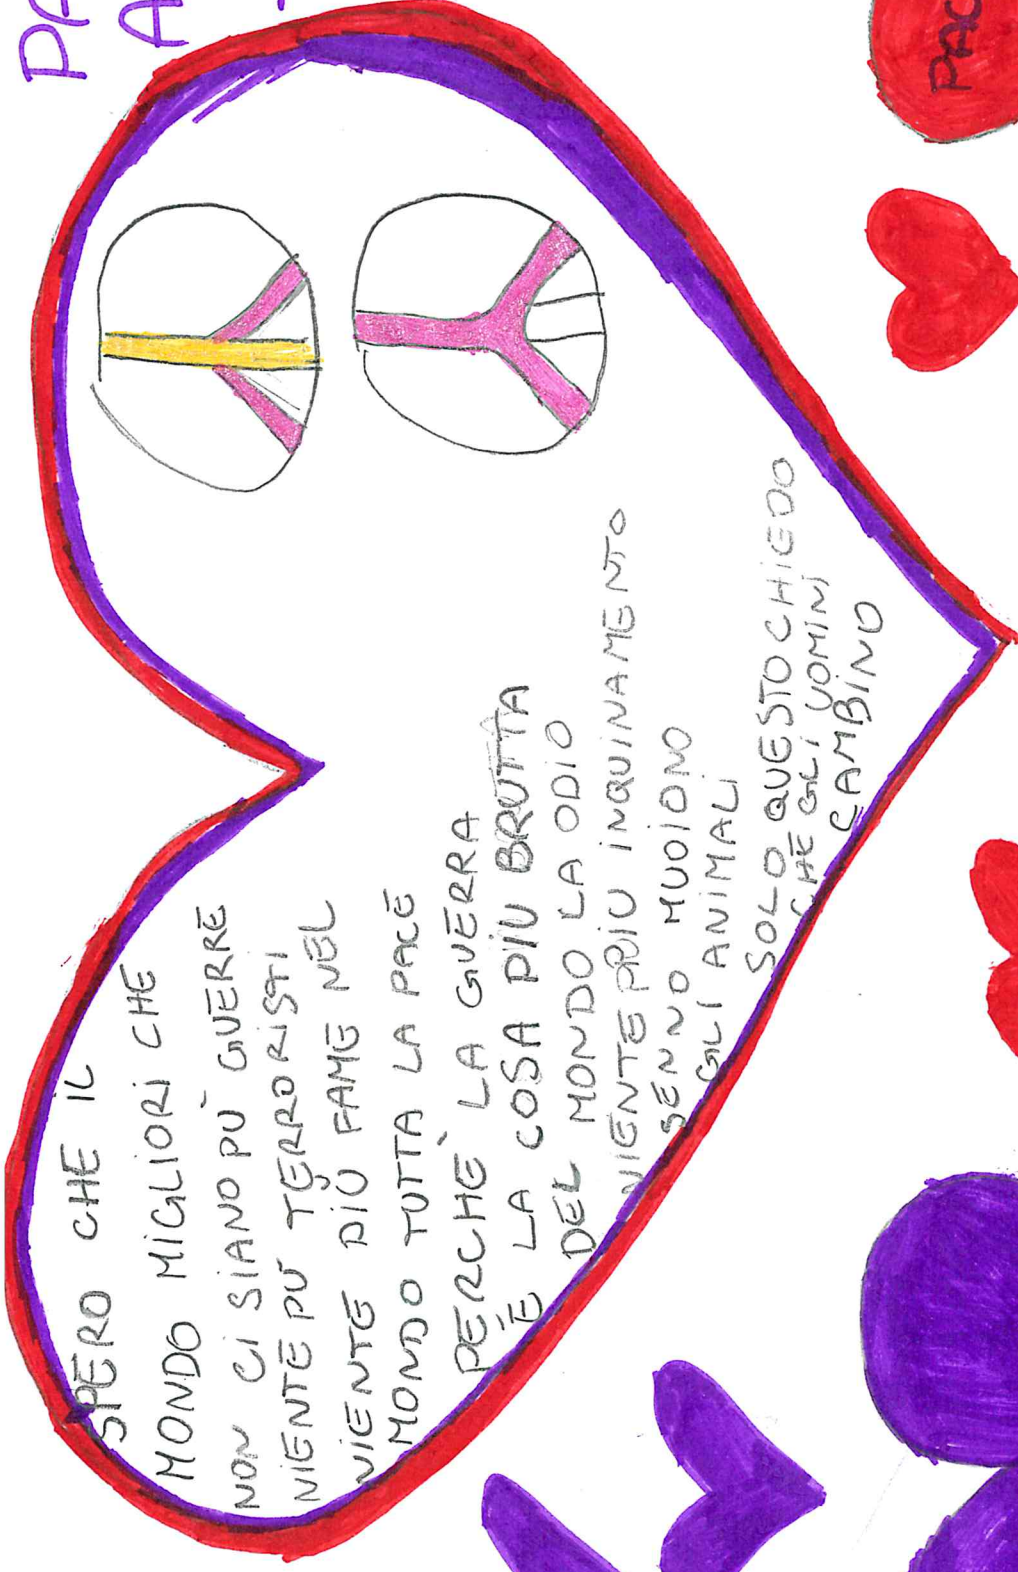 SPERO CHE IL
MONDO MIGLIORI CHE
NON CI SIANO PÙ GUERRE
NIENTE PÙ TERRORISTI
NIENTE PIÙ FAME NEL
MONDO TUTTA LA PACE
PERCHÈ LA GUERRA
È LA COSA PIÙ BRUTTA
DEL MONDO LA ODIO
NIENTE PIÙ INQUINAMENTO
SENNO MUOIONO
GLI ANIMALI
SOLO QUESTO CHIEDO
CHE GLI UOMINI
CAMBINO